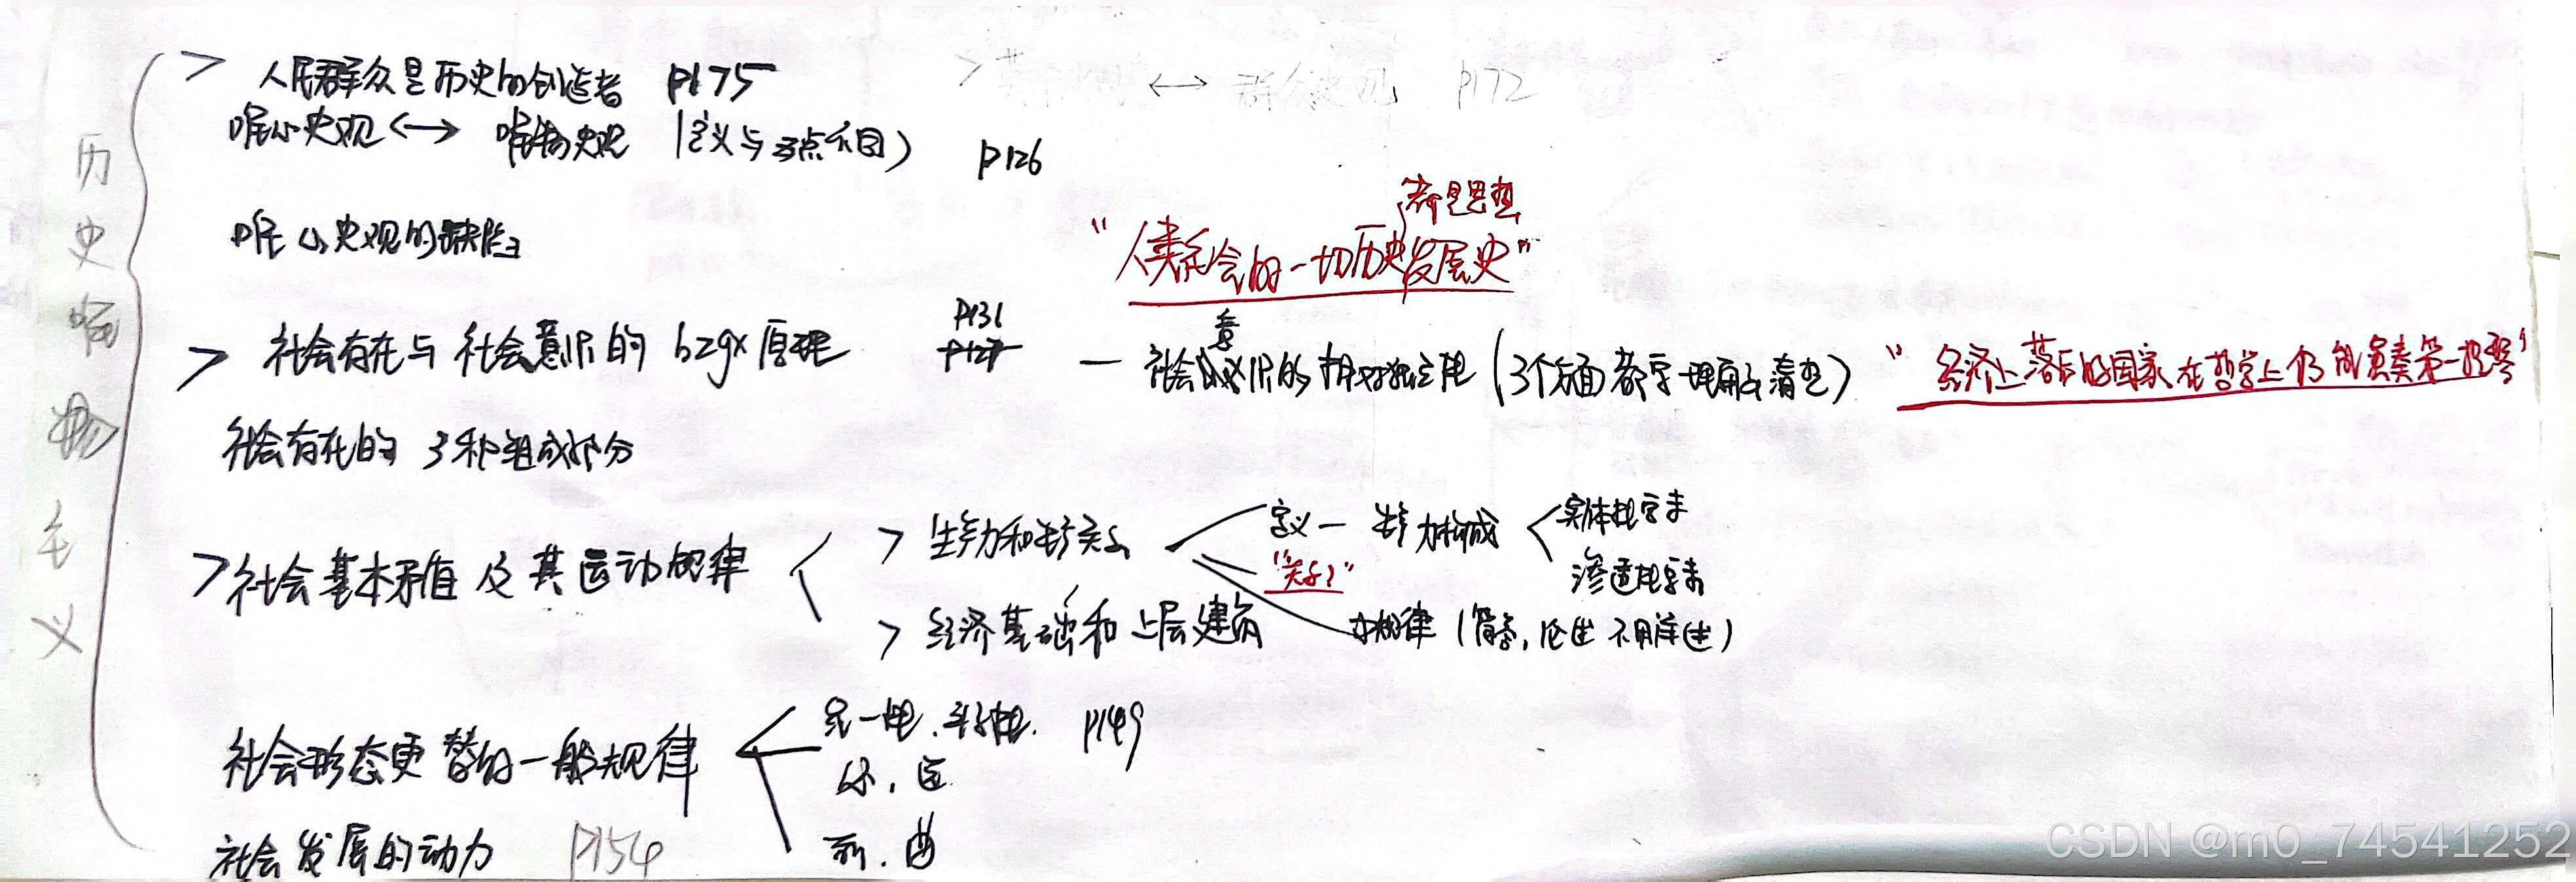 历史唯物主义
> 人民群众是历史的创造者 P175
> 英雄史观 <-> 群众史观 P172
唯心史观 <-> 唯物史观 (定义与观点不同) P126
唯心史观的缺陷
都是思想
"人类社会的一切历史发展史"
> 社会存在与社会意识的bzgx原理 P131
P127
— 社会意识的相对独立性 (3个方面都要理解清楚)
"经济上落后的国家在哲学上仍能演奏第一提琴"
社会存在的3种组成部分
> 社会基本矛盾及其运动规律
> 生产力和生产关系
定义 — 生产力构成
实体性要素
渗透性要素
"关系"
规律 (背, 论述 不用详述)
> 经济基础和上层建筑
社会形态更替的一般规律
统一性、多样性. P149
必、选
前、曲
社会发展的动力 P154
CSDN @m0_74541252